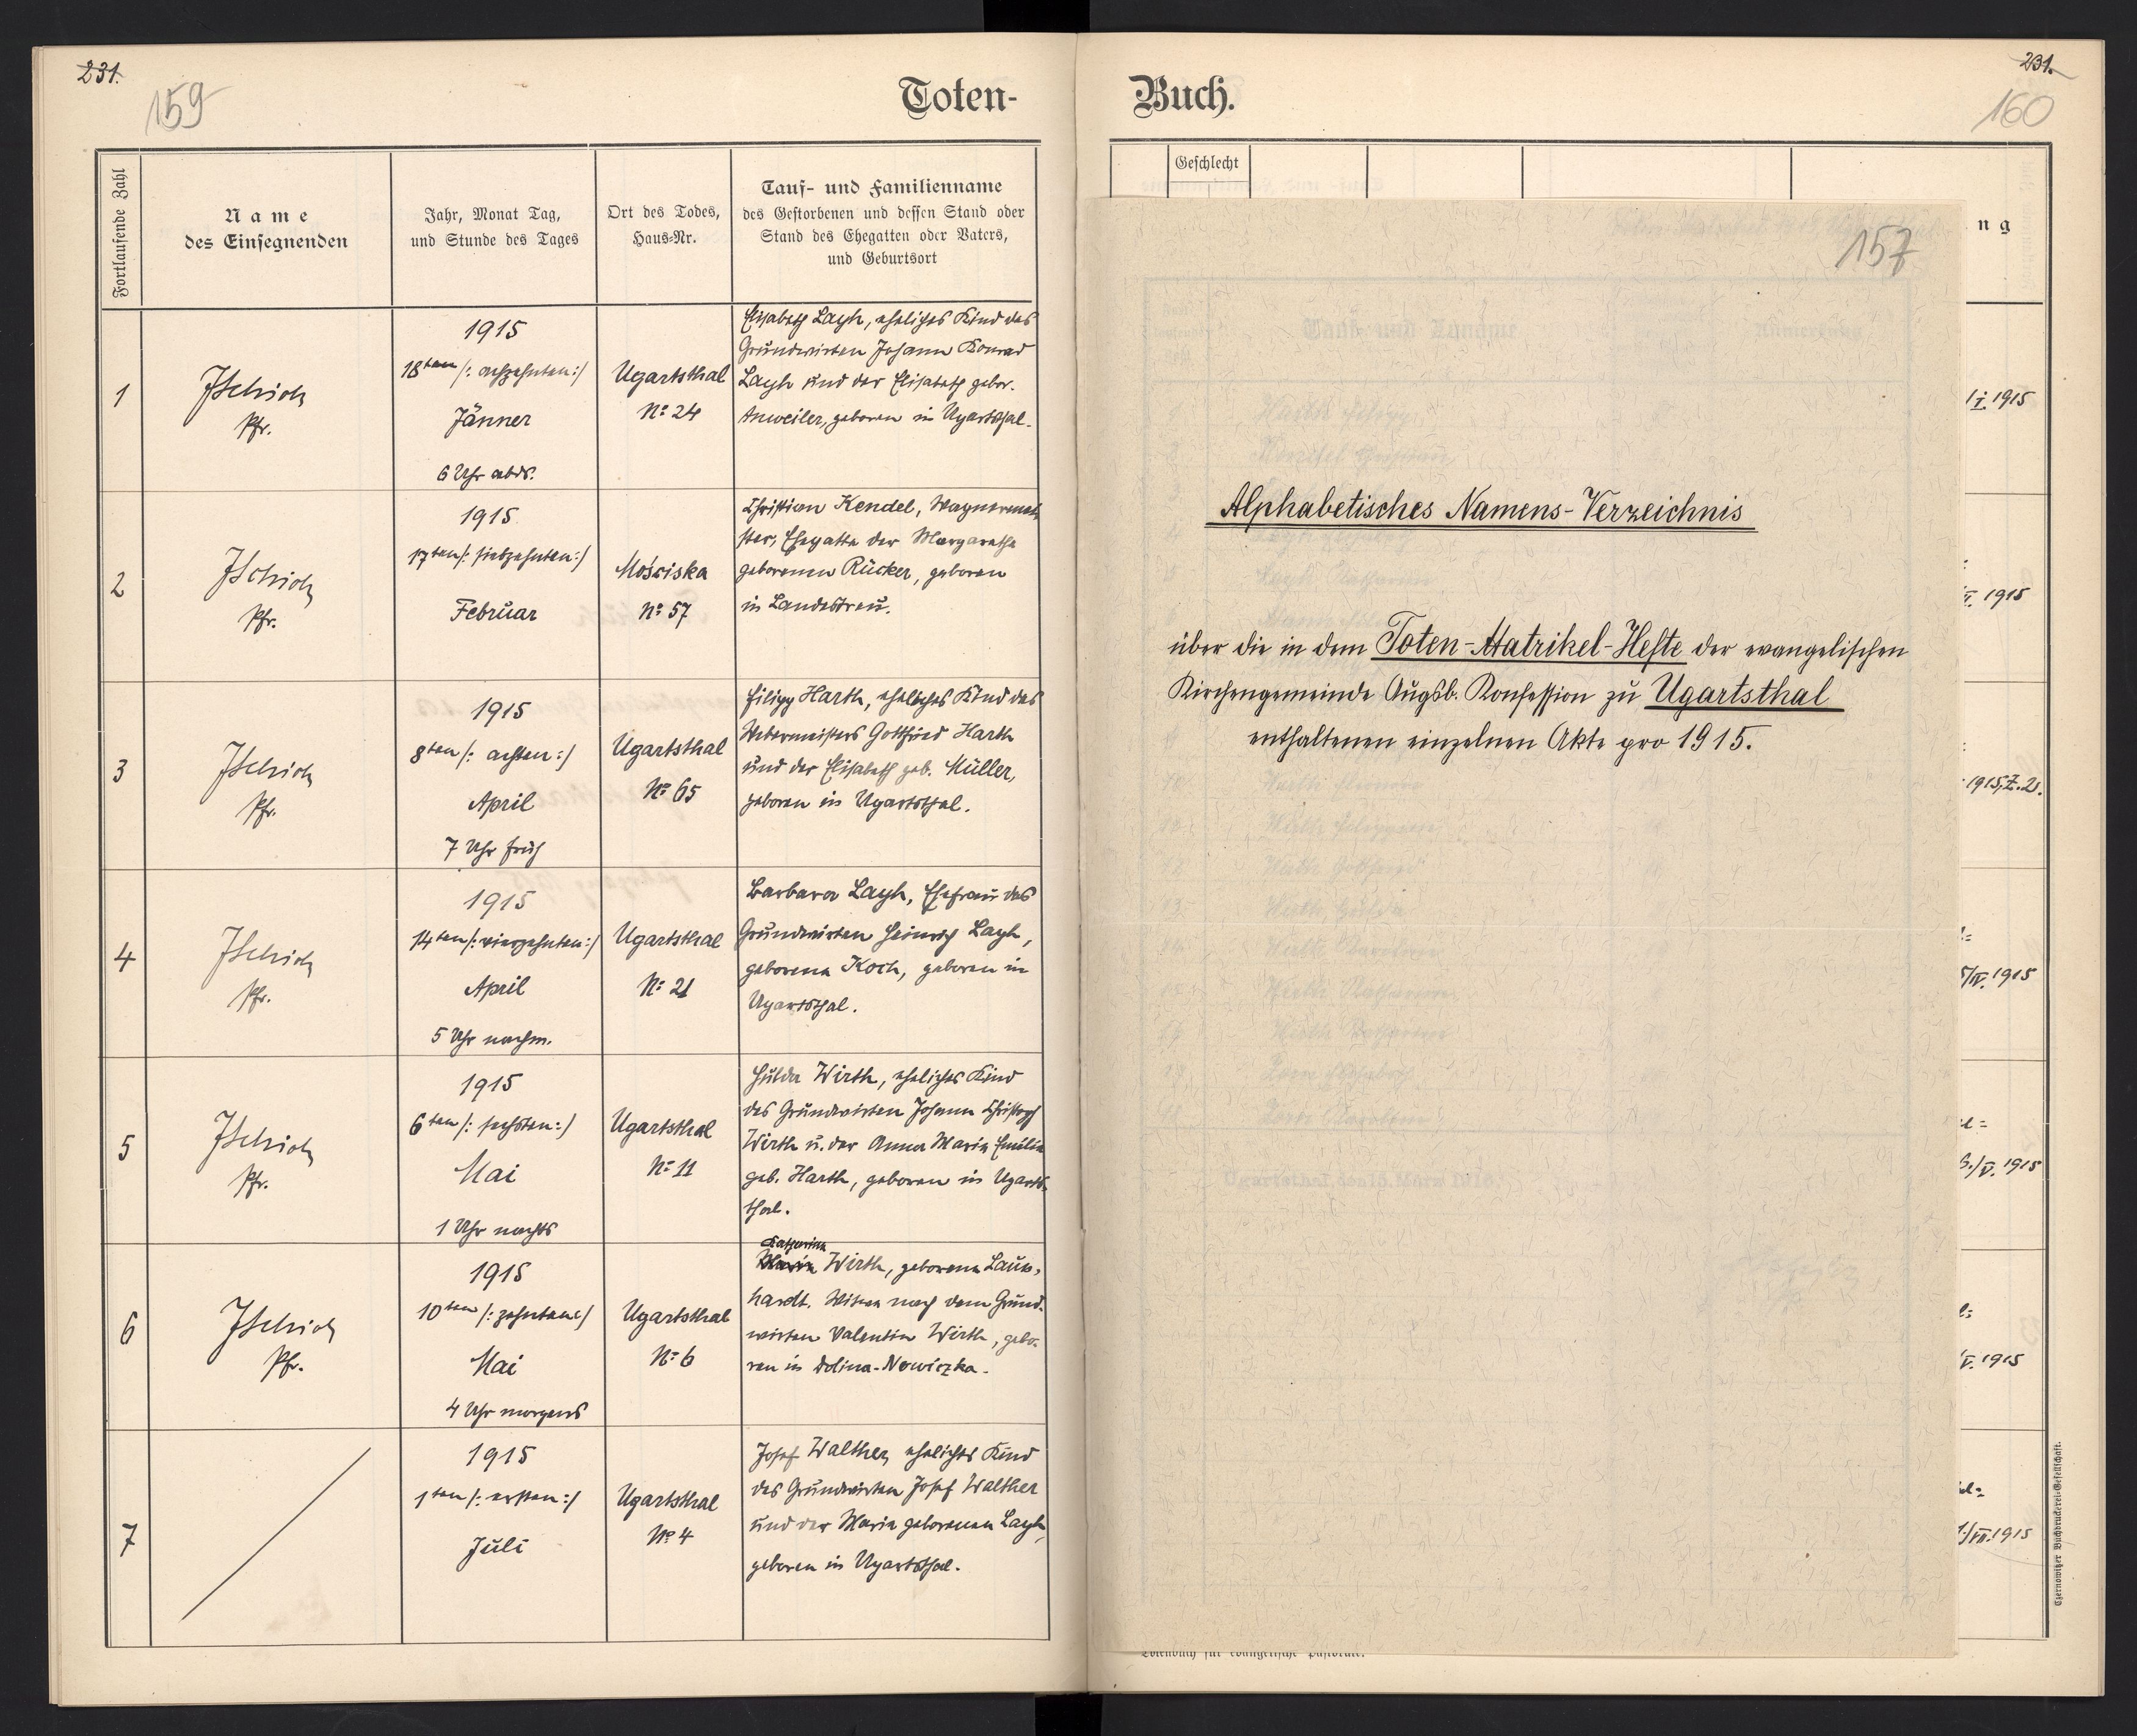 231.
159
Toten-
Fortlaufende Zahl
Name
des Einsegnenden
Jahr, Monat Tag,
und Stunde des Tages
Ort des Todes,
Haus-Nr.
Tauf- und Familienname
des Gestorbenen und dessen Stand oder
Stand des Ehegatten oder Vaters,
und Geburtsort
1
Pfr.
1915
18ten /: achzehnten :/
Jänner
6 Uhr abds.
Ugartsthal
No 24
Elisabeth Layh, eheliches Kind des
Grundwirten Johann Konrad
Layh und der Elisabeth gebor.
Anweiler, geboren in Ugartsthal.
2
Pfr.
1915
17ten /: siebzehnten :/
Februar
Mościska
No 57
Christian Kendel, Wagnermei-
ster, Ehegatte der Margarethe
geborenen Rücker, geboren
in Landestreu.
3
Pfr.
1915
8ten /: achten :/
April
7 Uhr früh
Ugartsthal
No 65
Filipp Harth, eheliches Kind des
Webermeisters Gottfried Harth
und der Elisabeth geb. Müller,
geboren in Ugartsthal.
4
Pfr.
1915
14ten /: vierzehnten :/
April
5 Uhr nachm.
Ugartsthal
No 21
Barbara Layh, Ehefrau des
Grundwirten Heinrich Layh,
geborene Koch, geboren in
Ugartsthal.
5
Pfr.
1915
6ten /: sechsten :/
Mai
1 Uhr nachts
Ugartsthal
No 11
Hulda Wirth, eheliches Kind
des Grundwirten Johann Christoph
Wirth u. der Anna Maria Emilie
geb. Harth, geboren in Ugarts-
thal.
6
Pfr.
1915
10ten /: zehnten :/
Mai
4 Uhr morgens
Ugartsthal
No 6
Katharina
Maria Wirth, geborene Laun-
hardt, Witwe nach dem Grund-
wirten Valentin Wirth, gebo-
ren in Dolina-Nowiczka.
7
1915
1ten /: ersten :/
Juli
Ugartsthal
No 4
Josef Walther, eheliches Kind
des Grundwirten Josef Walther
und der Maria geborenen Layh,
geboren in Ugartsthal.
231.
160
Buch.
Geschlecht
ng
157
Alphabetisches Namens-Verzeichnis
über die in dem Toten-Matrikel-Hefte der evangelischen
Kirchengemeinde Augsb. Konfession zu Ugartsthal
enthaltenen einzelnen Akte pro 1915.
I. 1915
1915
1915, Z. 2.
/IV. 1915
/V. 1915
V. 1915
/VII. 1915
Totenbuch für evangelische Pastorate.
Czernowitzer Buchdruckerei-Gesellschaft.